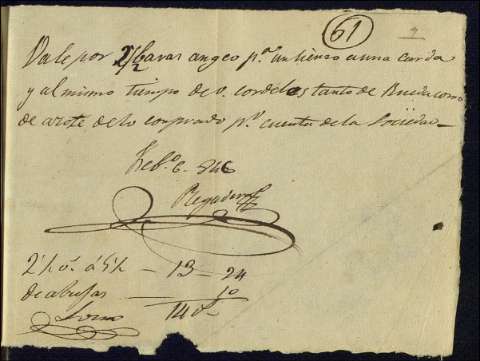 61
Vale por 2 1/2 baras angeo pª un lienzo a una carda
y al mismo tiempo de v. cordeles tanto de Rueda como
de azote de lo comprado pr cuenta de la Sociedad
Febº 6. 846
Regadera
2 1/2 vs. á 5 1/2 — 13 — 24
de abujas 10
14 v